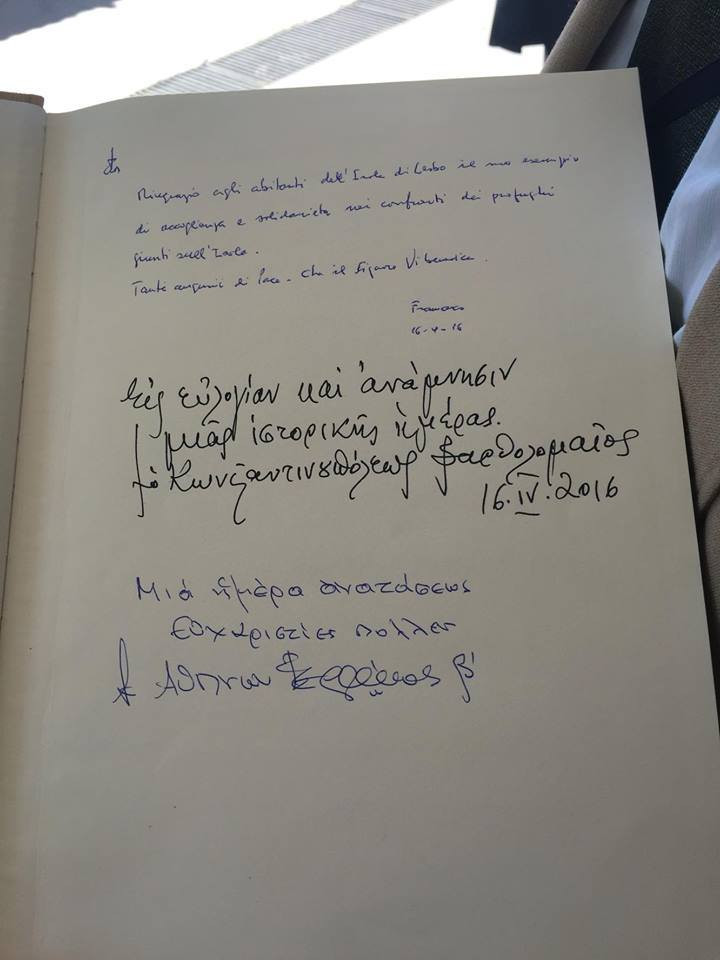 Ringrazio agli abitanti dell'Isola di Lesbo il suo esempio
di accoglienza e solidarietà nei confronti dei profughi
giunti sull'Isola.
Tanti auguri di Pace. Che il Signore Vi benedica.
Francesco
16-4-16
Εἰς εὐλογίαν καὶ ἀνάμνησιν
μιᾶς ἱστορικῆς ἡμέρας.
ὁ Κωνσταντινουπόλεως Βαρθολομαῖος
16.IV.2016
Μιά ἡμέρα αναστάσεως
Ευχαριστίες πολλές
Αθηνών Ιερώνυμος β'